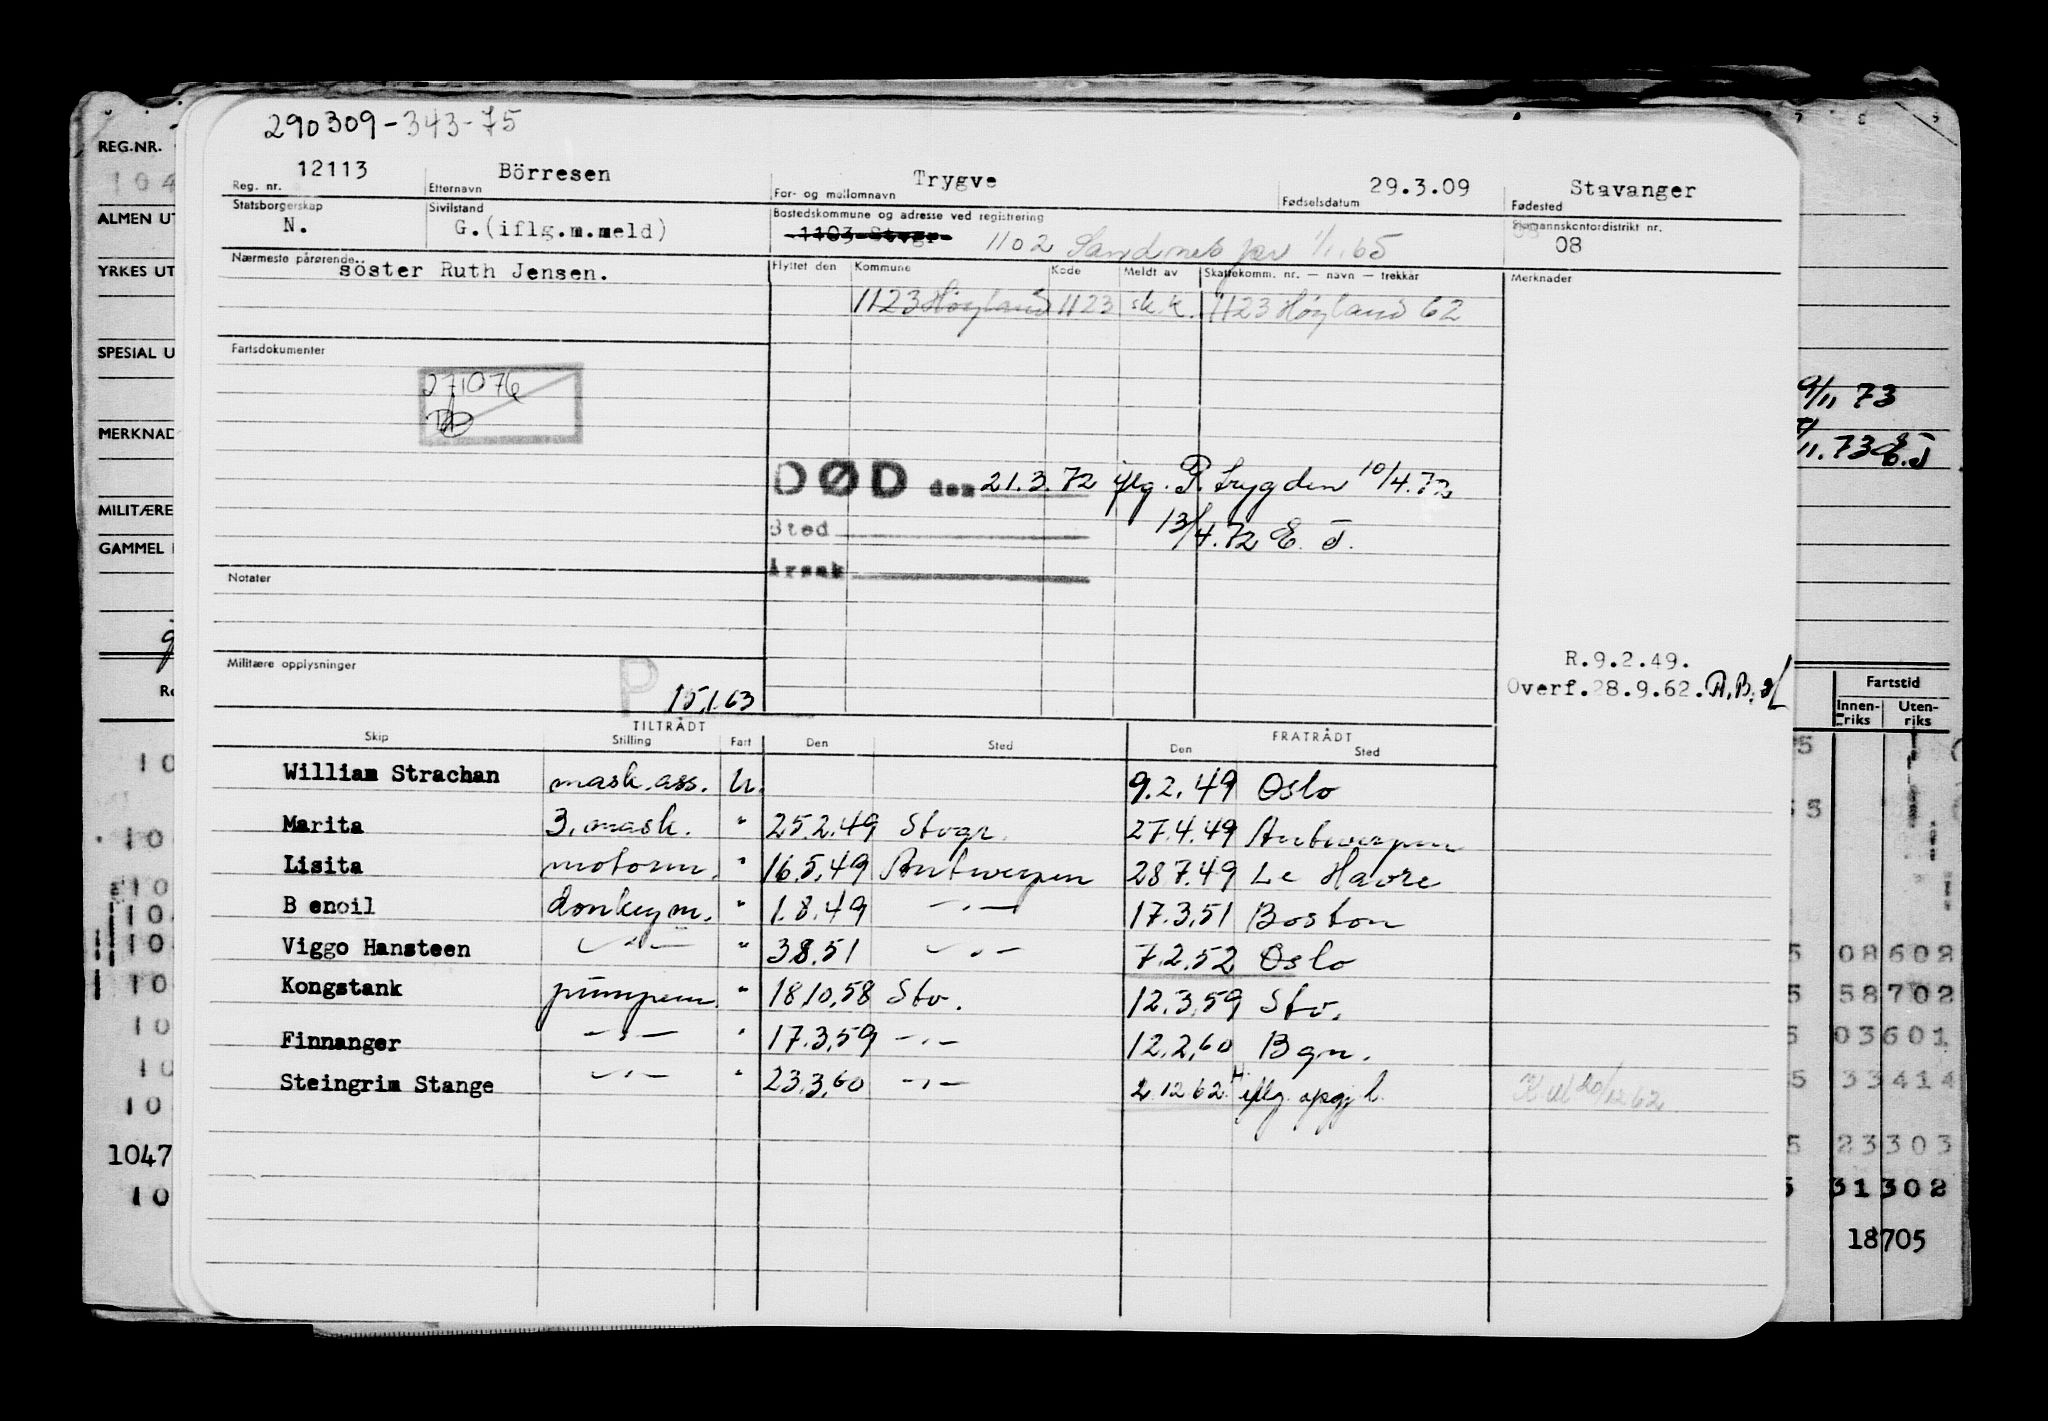 290309-343-75
12113 Börresen Trygve 29.3.09 Stavanger
Reg. nr. Etternavn For- og mellomnavn Fødselsdatum Fødested
Statsborgerskap Sivilstand Bostedskommune og adresse ved registrering Sjømannskontordistrikt nr.
N. G.(iflg.m.meld) 1103 Stvgr. 1102 Sandnes 1/1.65 08
Nærmeste pårørende: söster Ruth Jensen. Flyttet den Kommune Kode Meldt av Skattekomm. nr. — navn — trekkår Merknader
1123 Høyland 1123 sk.k. 1123 Høyland 62
Fartsdokumenter
271076
DØD den 21.3.72 iflg. P. trygden 10/4.72
Sted 13/4.72 E. J.
Årsak
Notater
Militære opplysninger
P 15.1.63
R.9.2.49.
Overf.28.9.62. A.B.
TILTRÅDT FRATRÅDT
Skip Stilling Fart Den Sted Den Sted
William Strachan mask.ass. U. 9.2.49 Oslo
Marita 3. mask. " 25.2.49 Stvgr. 27.4.49 Antwerpen
Lisita motorm. " 16.5.49 Antwerpen 28.7.49 Le Havre
B enoil donkeym. " 1.8.49 —"— 17.3.51 Boston
Viggo Hansteen —"— " 3.8.51 —"— 7.2.52 Oslo
Kongstank pumpem. " 18.10.58 Stv. 12.3.59 Stv.
Finnanger —"— " 17.3.59 —"— 12.2.60 Bgn.
Steingrim Stange —"— " 23.3.60 —"— 2.12.62 iflg. oppgj. l.
20/12 62
REG.NR.
104
ALMEN UT
YRKES UT
SPESIAL U
MERKNAD
MILITÆRE
GAMMEL
9/11 73
11.73 E.J
Fartstid
Innen-riks Uten-riks
08602
58702
03601
33414
23303
1047
31302
18705